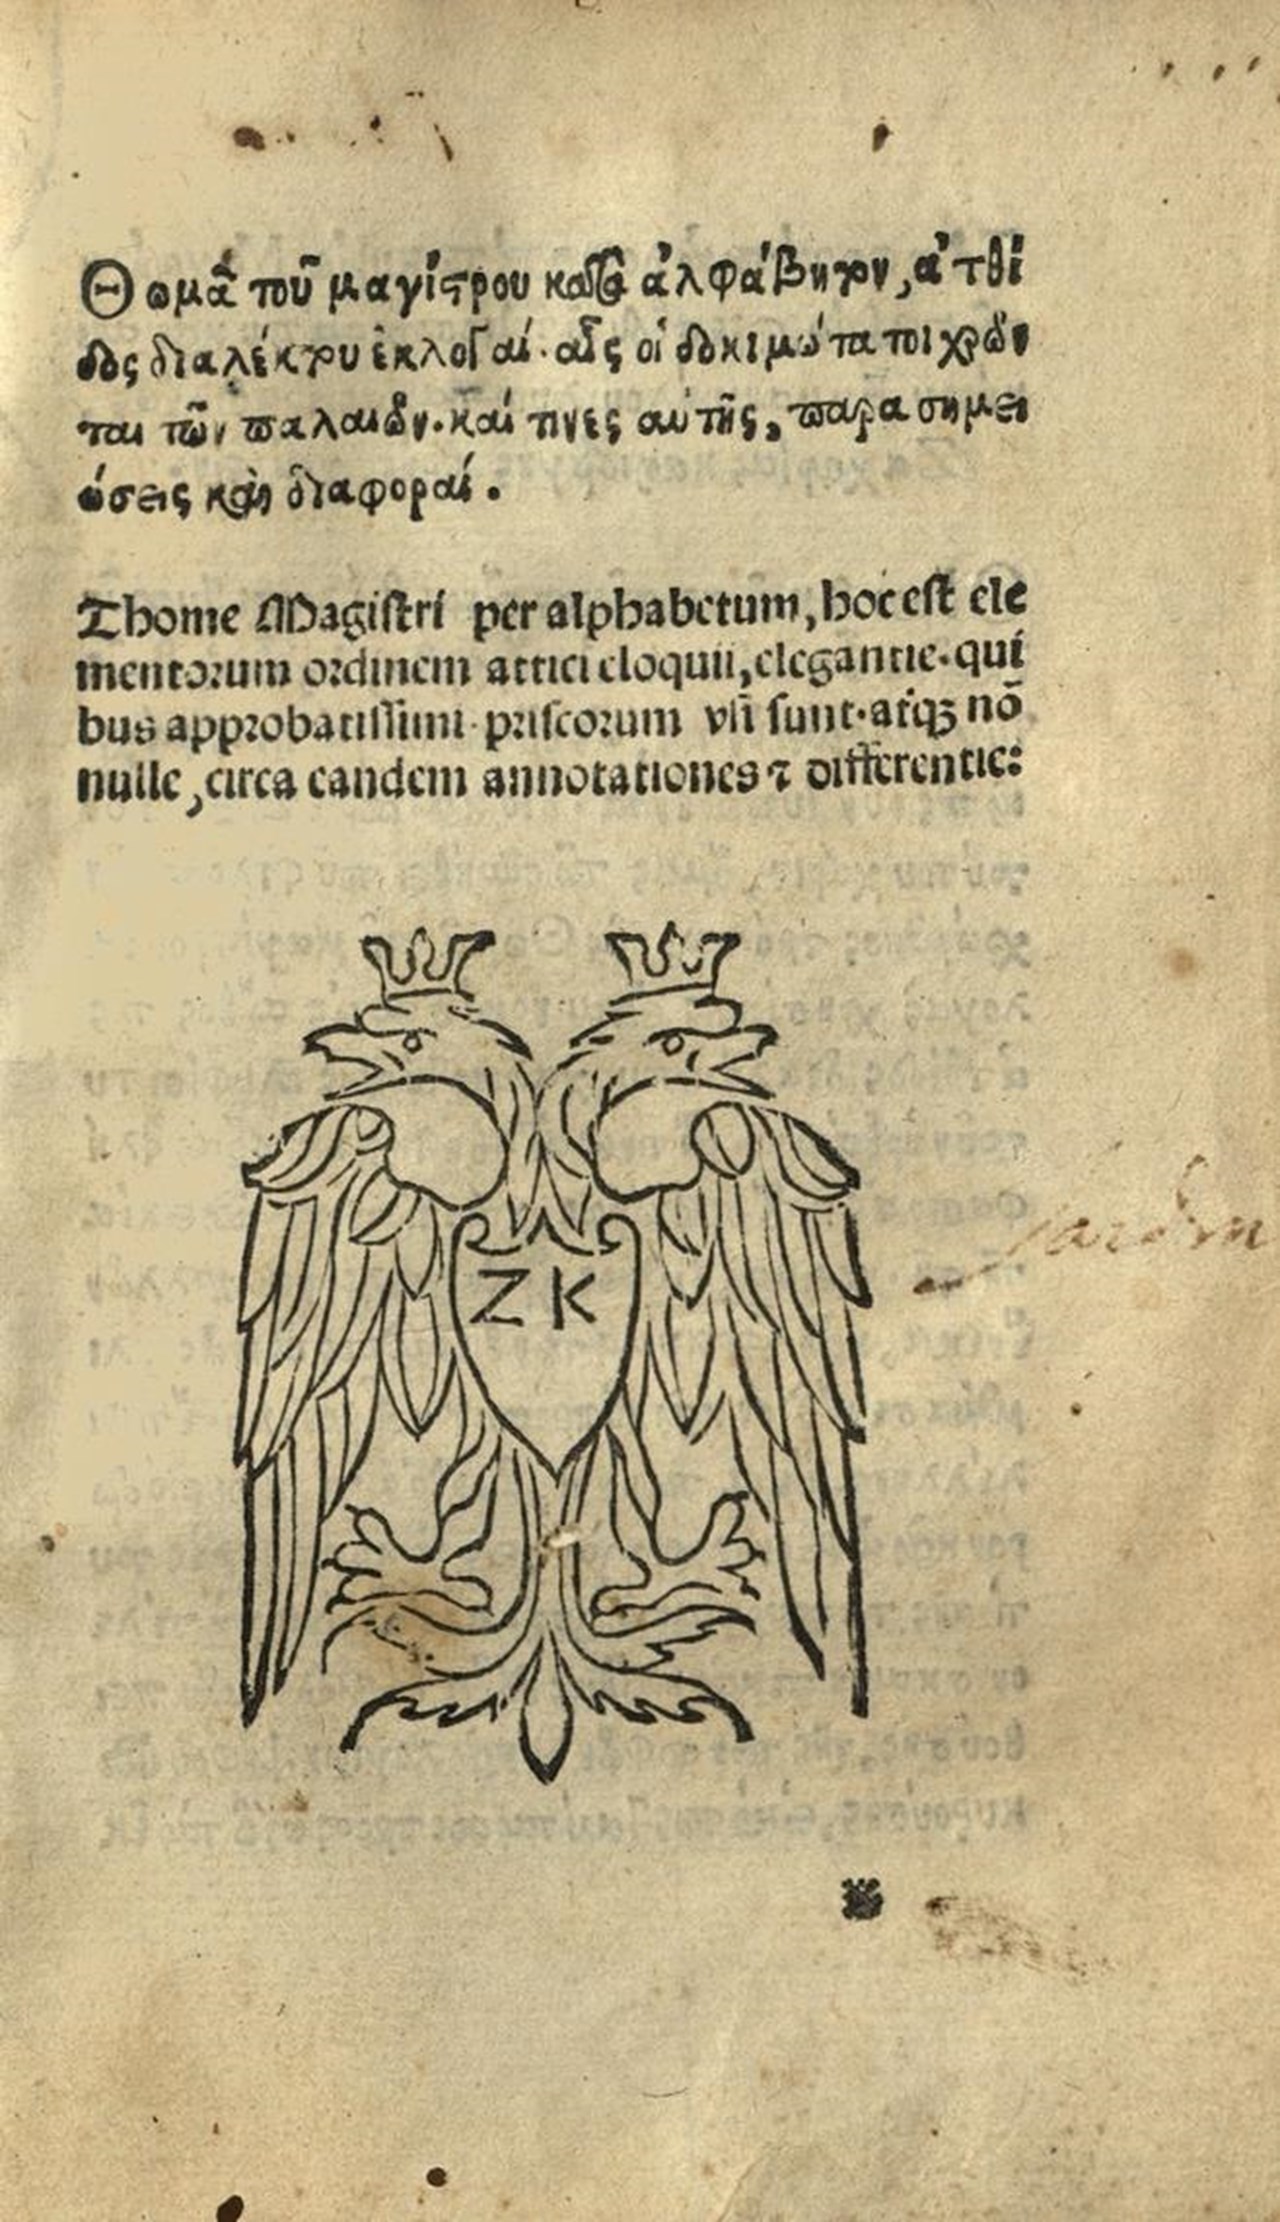 Θωμᾶ τοῦ μαγίστρου κατὰ ἀλφάβητον, ἀτθί
δος διαλέκτου ἐκλογαί· αἷς οἱ δοκιμώτατοι χρῶν
ται τῶν παλαιῶν. καί τινες αὐτῆς, παρασημει
ώσεις καὶ διαφοραί.
Thome Magistri per alphabetum, hoc est ele
mentorum ordinem attici eloquii, elegantie. qui
bus approbatissimi priscorum vsi sunt. atqꝫ nō
nulle, circa eandem annotationes ⁊ differentie:
Z K